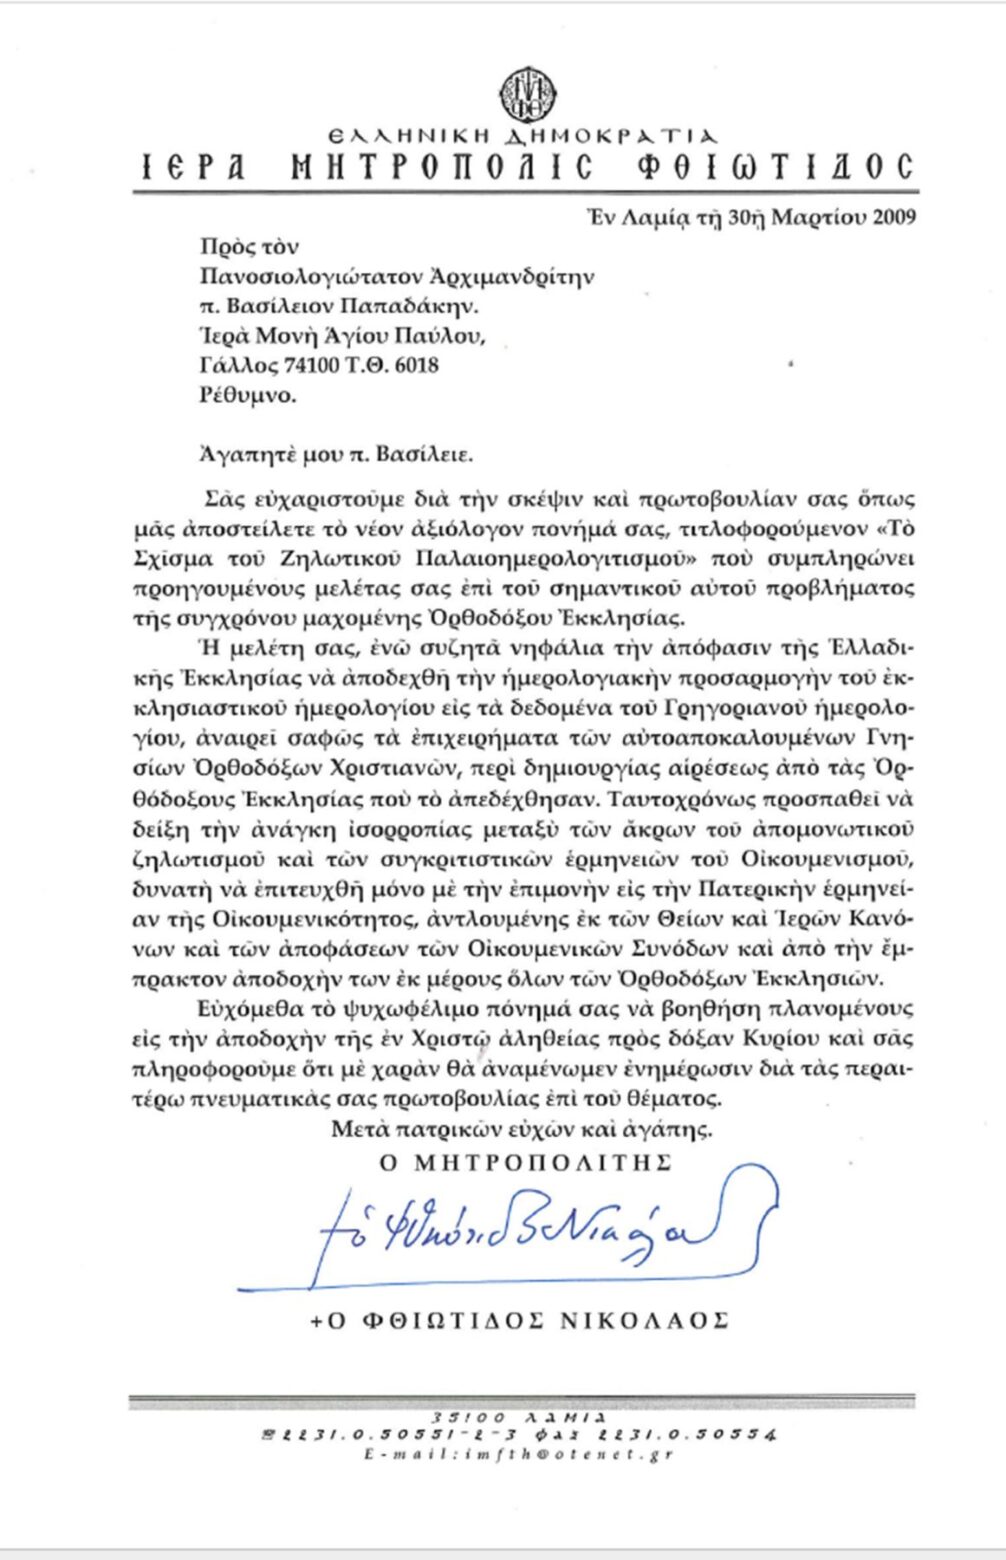 ΕΛΛΗΝΙΚΗ ΔΗΜΟΚΡΑΤΙΑ
ΙΕΡΑ ΜΗΤΡΟΠΟΛΙΣ ΦΘΙΩΤΙΔΟΣ
Ἐν Λαμίᾳ τῇ 30ῇ Μαρτίου 2009
Πρὸς τὸν
Πανοσιολογιώτατον Ἀρχιμανδρίτην
π. Βασίλειον Παπαδάκην.
Ἱερὰ Μονὴ Ἁγίου Παύλου,
Γάλλος 74100 Τ.Θ. 6018
Ρέθυμνο.
Ἀγαπητὲ μου π. Βασίλειε.
Σᾶς εὐχαριστοῦμε διὰ τὴν σκέψιν καὶ πρωτοβουλίαν σας ὅπως
μᾶς ἀποστείλετε τὸ νέον ἀξιόλογον πονήμά σας, τιτλοφορούμενον «Τὸ
Σχῖσμα τοῦ Ζηλωτικοῦ Παλαιοημερολογιτισμοῦ» ποὺ συμπληρώνει
προηγουμένους μελέτας σας ἐπὶ τοῦ σημαντικοῦ αὐτοῦ προβλήματος
τῆς συγχρόνου μαχομένης Ὀρθοδόξου Ἐκκλησίας.
Ἡ μελέτη σας, ἐνῶ συζητᾶ νηφάλια τὴν ἀπόφασιν τῆς Ἑλλαδι-
κῆς Ἐκκλησίας νὰ ἀποδεχθῆ τὴν ἡμερολογιακὴν προσαρμογὴν τοῦ ἐκ-
κλησιαστικοῦ ἡμερολογίου εἰς τὰ δεδομένα τοῦ Γρηγοριανοῦ ἡμερολο-
γίου, ἀναιρεῖ σαφῶς τὰ ἐπιχειρήματα τῶν αὐτοαποκαλουμένων Γνη-
σίων Ὀρθοδόξων Χριστιανῶν, περὶ δημιουργίας αἱρέσεως ἀπὸ τὰς Ὀρ-
θόδοξους Ἐκκλησίας ποὺ τὸ ἀπεδέχθησαν. Ταυτοχρόνως προσπαθεῖ νὰ
δείξη τὴν ἀνάγκη ἰσορροπίας μεταξὺ τῶν ἄκρων τοῦ ἀπομονωτικοῦ
ζηλωτισμοῦ καὶ τῶν συγκριτιστικῶν ἑρμηνειῶν τοῦ Οἰκουμενισμοῦ,
δυνατὴ νὰ ἐπιτευχθῆ μόνο μὲ τὴν ἐπιμονὴν εἰς τὴν Πατερικὴν ἑρμηνεί-
αν τῆς Οἰκουμενικότητος, ἀντλουμένης ἐκ τῶν Θείων καὶ Ἱερῶν Κανό-
νων καὶ τῶν ἀποφάσεων τῶν Οἰκουμενικῶν Συνόδων καὶ ἀπὸ τὴν ἔμ-
πρακτον ἀποδοχὴν των ἐκ μέρους ὅλων τῶν Ὀρθοδόξων Ἐκκλησιῶν.
Εὐχόμεθα τὸ ψυχωφέλιμο πόνημά σας νὰ βοηθήση πλανομένους
εἰς τὴν ἀποδοχὴν τῆς ἐν Χριστῷ ἀληθείας πρὸς δόξαν Κυρίου καὶ σᾶς
πληροφοροῦμε ὅτι μὲ χαρὰν θὰ ἀναμένωμεν ἐνημέρωσιν διὰ τὰς περαι-
τέρω πνευματικὰς σας πρωτοβουλίας ἐπὶ τοῦ θέματος.
Μετὰ πατρικῶν εὐχῶν καὶ ἀγάπης.
Ο ΜΗΤΡΟΠΟΛΙΤΗΣ
+Ο ΦΘΙΩΤΙΔΟΣ ΝΙΚΟΛΑΟΣ
35100 ΛΑΜΙΑ
☎2231.0.50551-2-3 φαξ 2231.0.50554
E-mail:imfth@otenet.gr